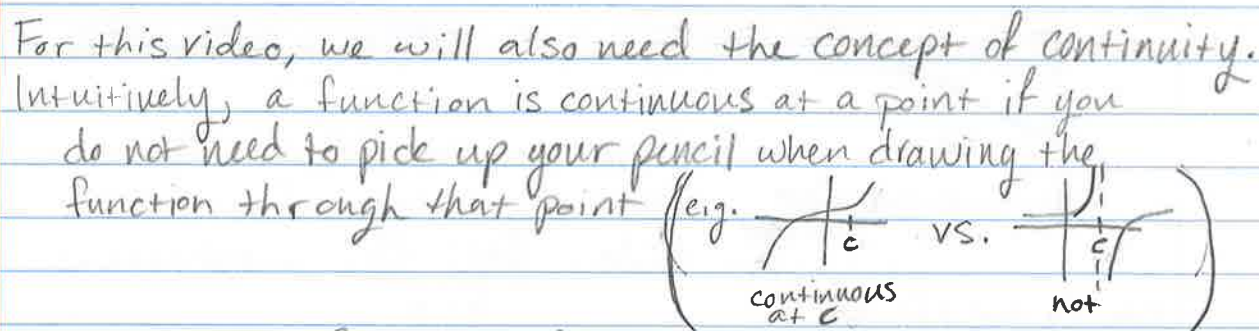 For this video, we will also need the concept of continuity.
Intuitively, a function is continuous at a point if you
do not need to pick up your pencil when drawing the
function through that point (e.g. c vs. c )
continuous not
at c